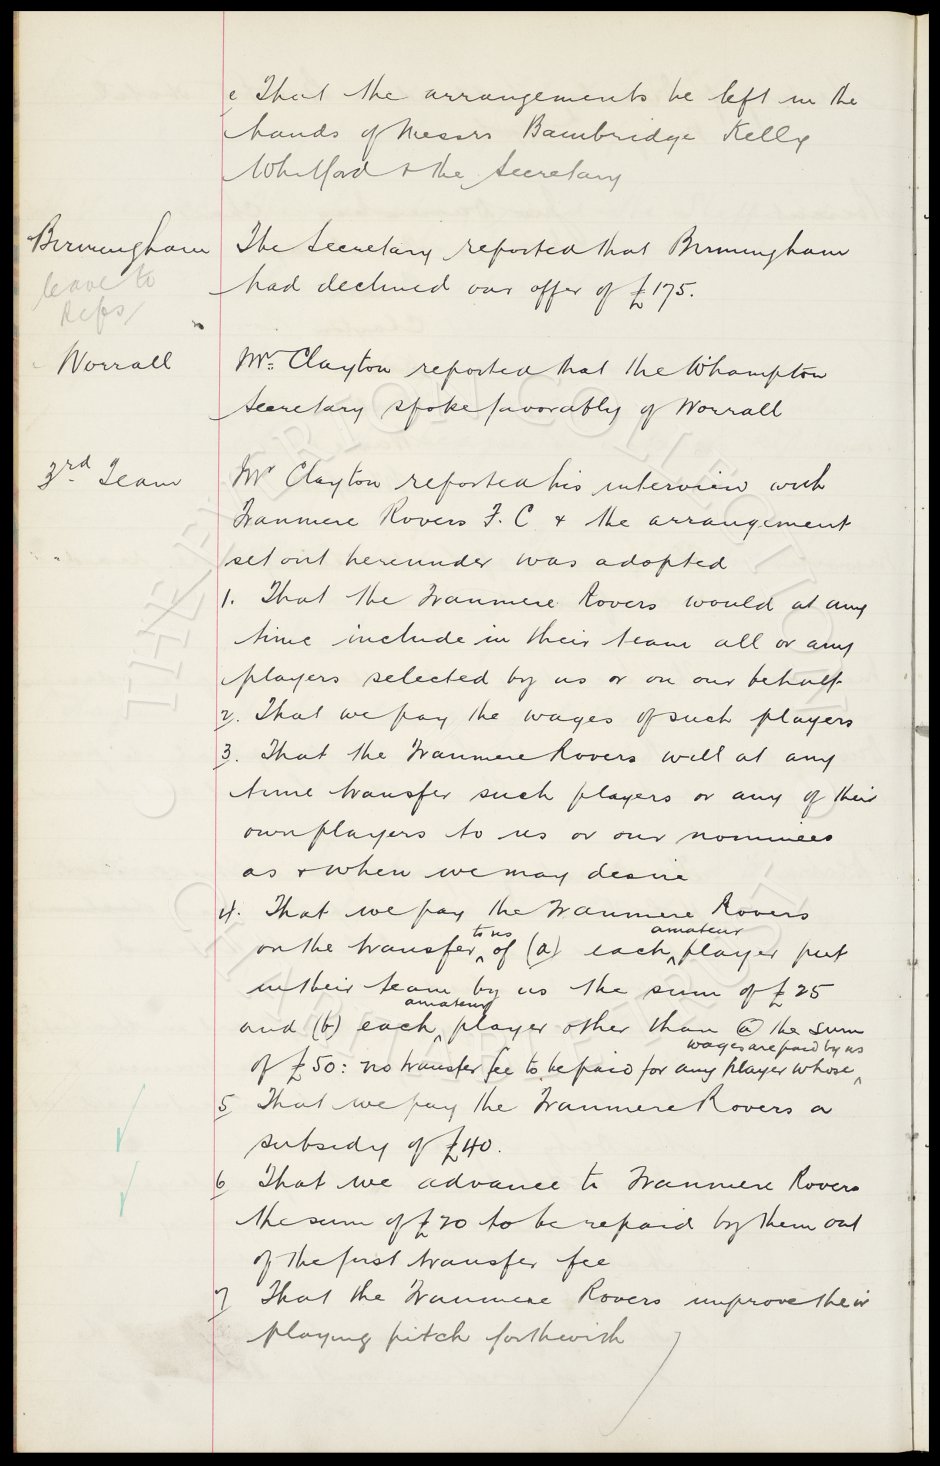 c That the arrangements be left in the
hands of Messrs Bainbridge Kelly
Whitford & the Secretary
Birmingham The Secretary reported that Birmingham
leave to had declined our offer of £175.
Worrall Mr. Clayton reported that the W'hampton
Secretary spoke favorably of Worrall
3rd Team Mr Clayton reported his interview with
Tranmere Rovers F. C & the arrangement
set out hereunder was adopted
1. That the Tranmere Rovers would at any
time include in their team all or any
players selected by us or on our behalf
2. That we pay the wages of such players
3. That the Tranmere Rovers will at any
time transfer such players or any of their
own players to us or our nominees
as & when we may desire
4. That we pay the Tranmere Rovers
on the transfer to us of (a) each amateur player put
in their team by us the sum of £25
and (b) each amateur player other than (a) the sum
of £50: no transfer fee to be paid for any player whose wages are paid by us
5 That we pay the Tranmere Rovers a
subsidy of £40.
6 That we advance to Tranmere Rovers
the sum of £20 to be repaid by them out
of the first transfer fee
7 That the Tranmere Rovers improve their
playing pitch forthwith
THE EVERTON COLLECTION CHARITABLE TRUST